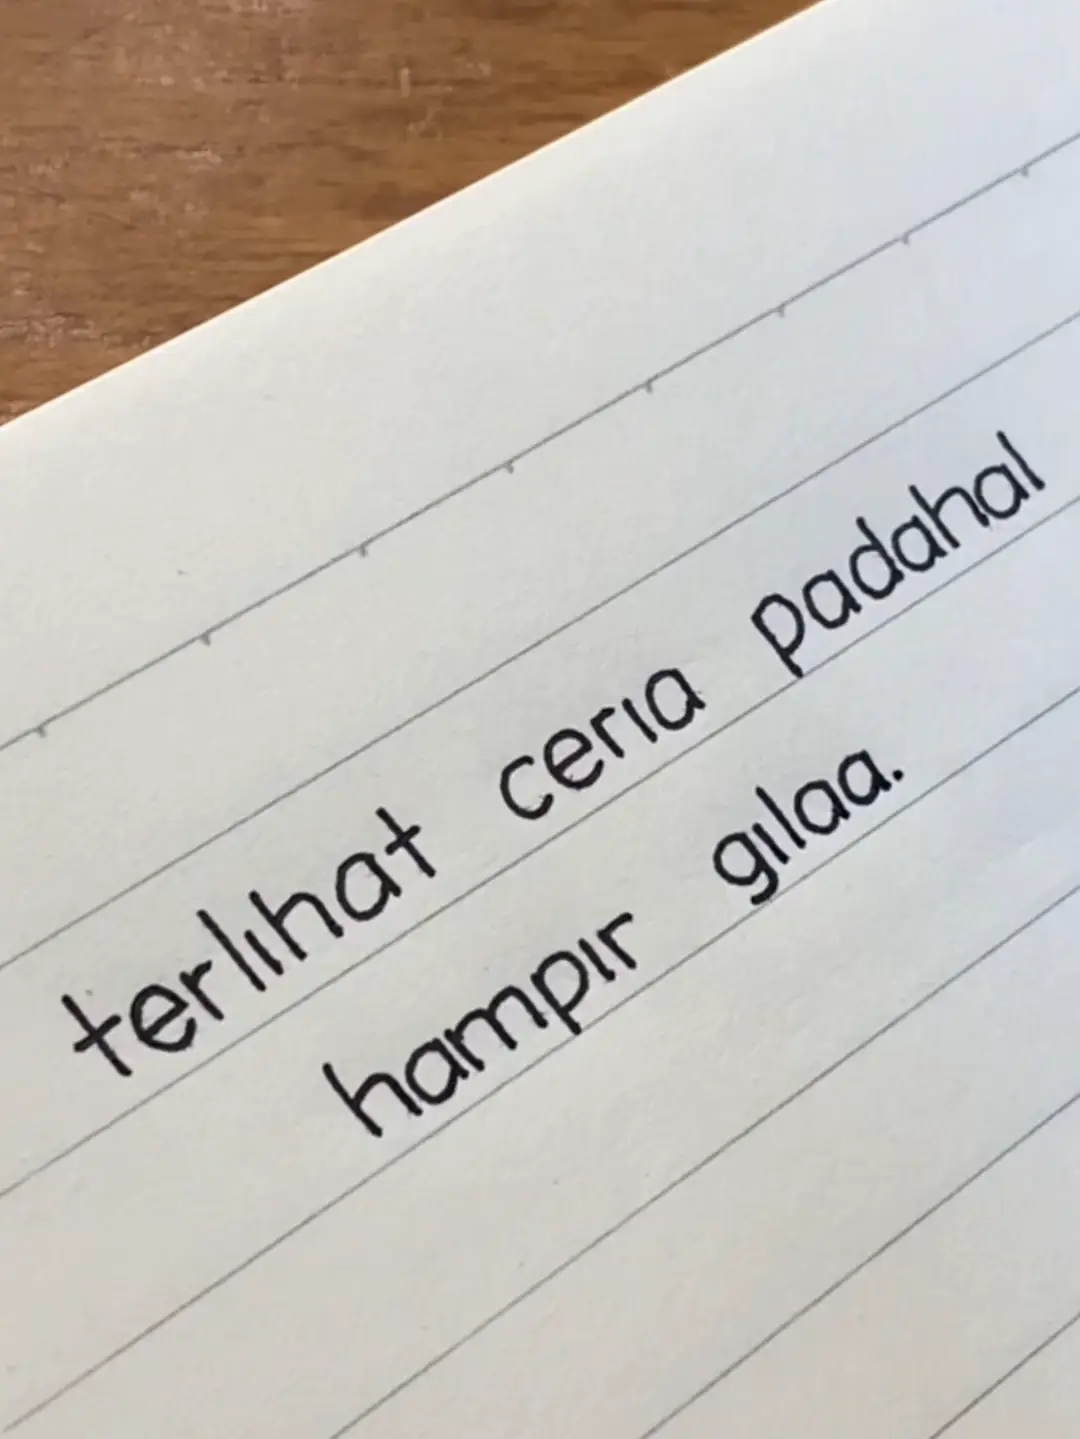 terlihat ceria padahal
hampir gilaa.